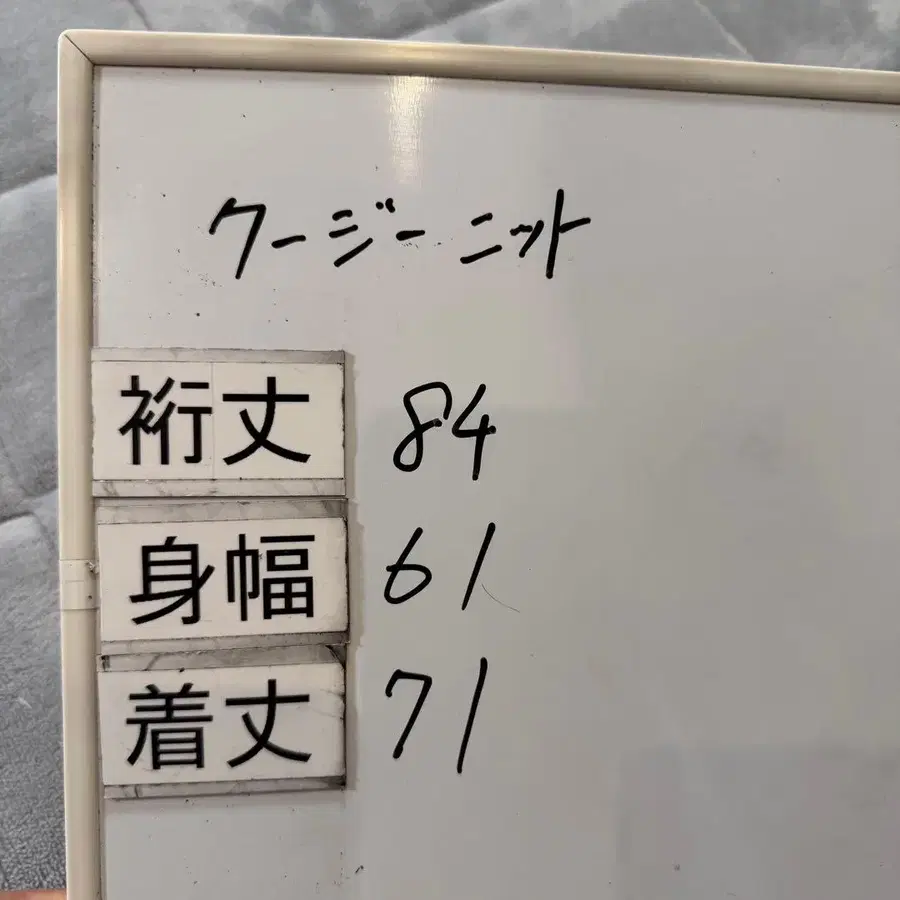 クージーニット
裄丈 84
身幅 61
着丈 71